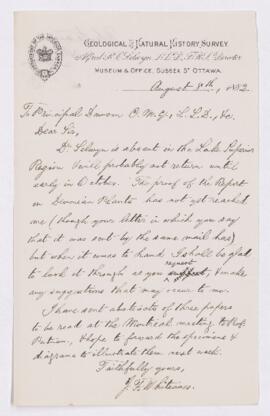 GEOLOGICAL & NATURAL HISTORY SURVEY
Alfred R. C. Selwyn, LL.D., F.R.S., Director
MUSEUM & OFFICE, SUSSEX ST OTTAWA.
August 8th, 1882
To Principal Dawson C.M.G., L.L.D., &c.
Dear Sir,
Dr. Selwyn is absent in the Lake Superior
Region & will probably not return until
early in October. The proof of the Report
on Devonian Plants has not yet reached
me (though your letter in which you say
that it was sent by the same mail has)
but when it comes to hand I shall be glad
request
to look it through as you suggest, & make
any suggestions that may occur to me.
I have sent abstracts of three papers
to be read at the Montreal meeting to Prof.
Putnam, & hope to forward the specimens &
diagrams to illustrate them next week.
Faithfully yours,
J. F. Whiteaves